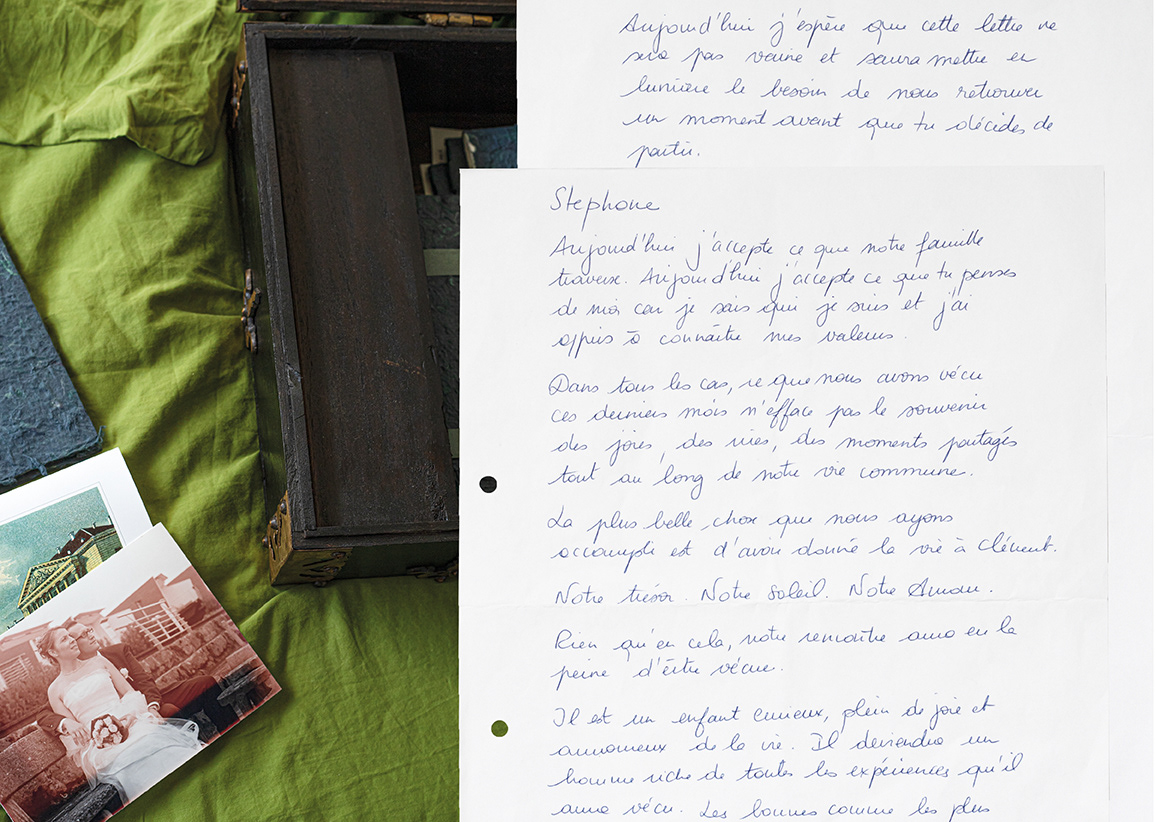 Aujourd'hui j'espère que cette lettre ne
sera pas vaine et saura mettre en
lumière le besoin de nous retrouver
un moment avant que tu décides de
partir.
Stephane
Aujourd'hui j'accepte ce que notre famille
traverse. Aujourd'hui j'accepte ce que tu penses
de moi car je sais qui je suis et j'ai
appris à connaître mes valeurs.
Dans tous les cas, ce que nous avons vécu
ces derniers mois n'efface pas le souvenir
des joies, des rires, des moments partagés
tout au long de notre vie commune.
La plus belle chose que nous ayons
accompli est d'avoir donné la vie à Clément.
Notre trésor. Notre soleil. Notre Amour.
Rien qu'en cela, notre rencontre aura eu la
peine d'être vécue.
Il est un enfant curieux, plein de joie et
amoureux de la vie. Il deviendra un
homme riche de toutes les expériences qu'il
aura vécu. Les bonnes comme les plus